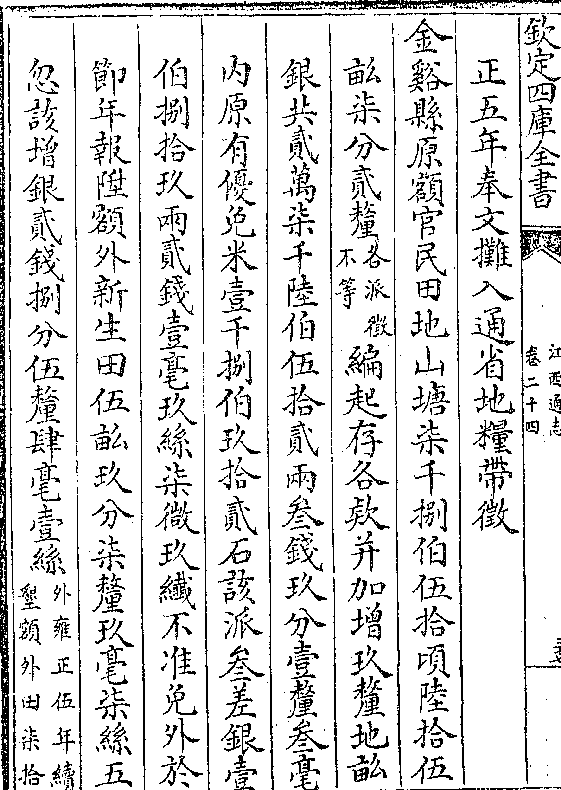 欽定四庫全書
江西通志
卷二十四
正五年奉文攤入通省地糧帶徵
金谿縣原額官民田地山塘柒千捌伯伍拾頃陸拾伍
畆柒分貳釐各派徵不等編起存各款并加增玖釐地畆
銀共貳萬柒千陸伯伍拾貳兩叁錢玖分壹釐叁毫
内原有優免米壹千捌伯玖拾貳石該派叁差銀壹
伯捌拾玖兩貳錢壹毫玖絲柒微玖纖不准免外於
節年報陞額外新生田伍畆玖分柒釐玖毫柒絲五
忽該增銀貳錢捌分伍釐肆毫壹絲外雍正伍年續墾額外田柒拾